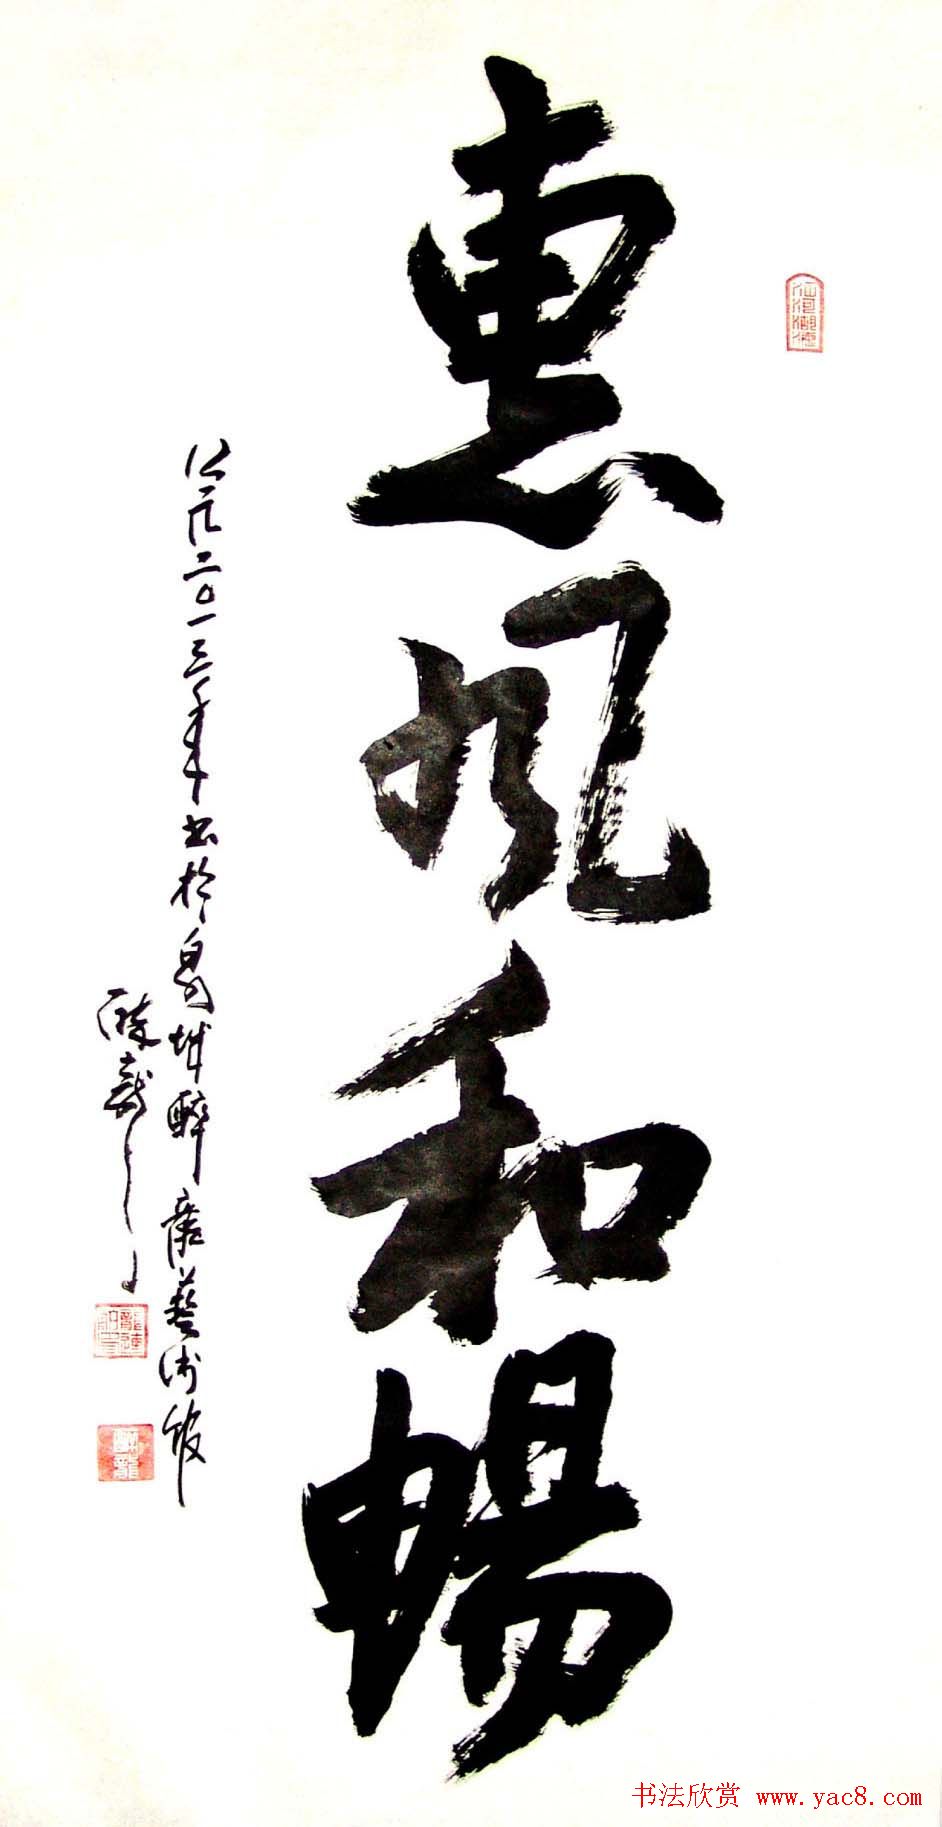 惠风和暢
公元二〇一三年书於易城醉唐藝術館
醉龍
书法欣赏 www.yac8.com